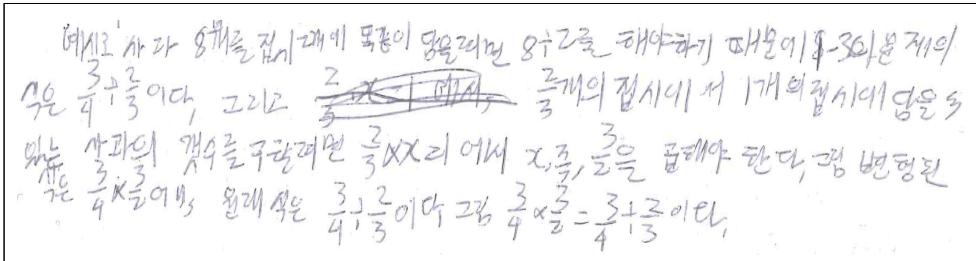 예시로 사과 8개를 접시 2개에 똑같이 담을려면 8÷2를 해야하기 때문에 1-3의 문제의
식은 3/4÷2/3이다, 그리고 2/3개의 접시에서 1개의 접시에 담을 수
있는 사과의 갯수를 구할려면 2/3×x= 에서 x, 즉, 3/2을 곱해야 한다, 그럼 변형된
식은 3/4×3/2이며, 원래 식은 3/4÷2/3이다 그럼 3/4×3/2=3/4÷2/3이다,